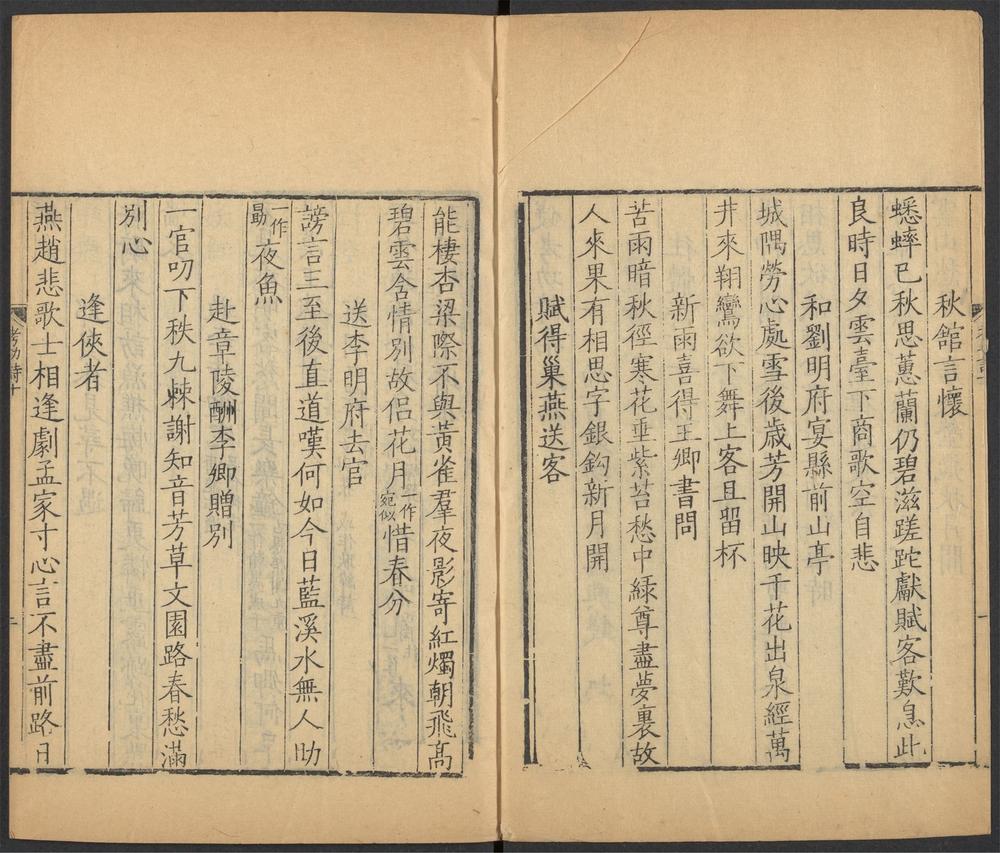 秋館言懷
蟋蟀已秋思蕙蘭仍碧滋蹉跎獻賦客歎息此
良時日夕雲臺下商歌空自悲
和劉明府宴縣前山亭
城隅勞心處雪後歲芳開山映千花出泉經萬
井來翔鸞欲下舞上客且留杯
新雨喜得王卿書問
苦雨暗秋徑寒花垂紫苔愁中綠尊盡夢裏故
人來果有相思字銀鈎新月開
賦得巢燕送客
能棲杏梁際不與黃雀羣夜影寄紅燭朝飛高
碧雲含情別故侶花月一作宛似惜春分
送李明府去官
謗言三至後直道嘆何如今日藍溪水無人助
一作勗夜魚
赴章陵酬李卿贈別
一官叨下秩九棘謝知音芳草文園路春愁滿
別心
逢俠者
燕趙悲歌士相逢劇孟家寸心言不盡前路日
考功詩十